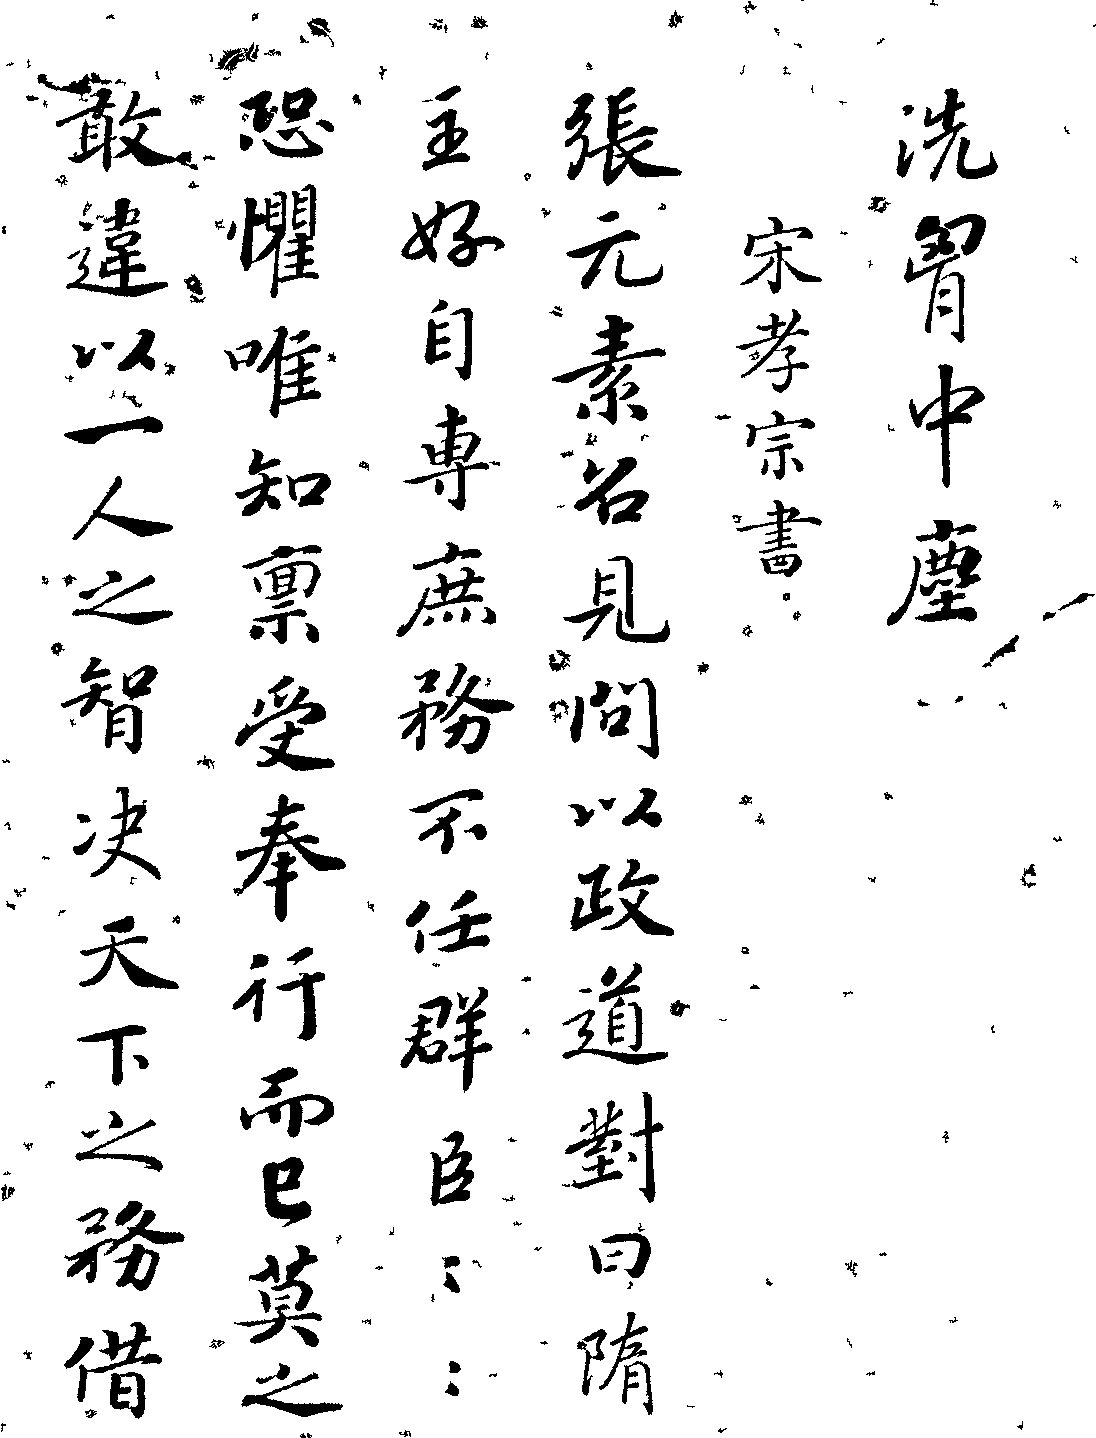 洗胷中塵
宋孝宗書
張元素召見問以政道對曰隋
主好自專庶務不任群臣〻〻
恐懼唯知禀受奉行而已莫之
敢違以一人之智决天下之務借